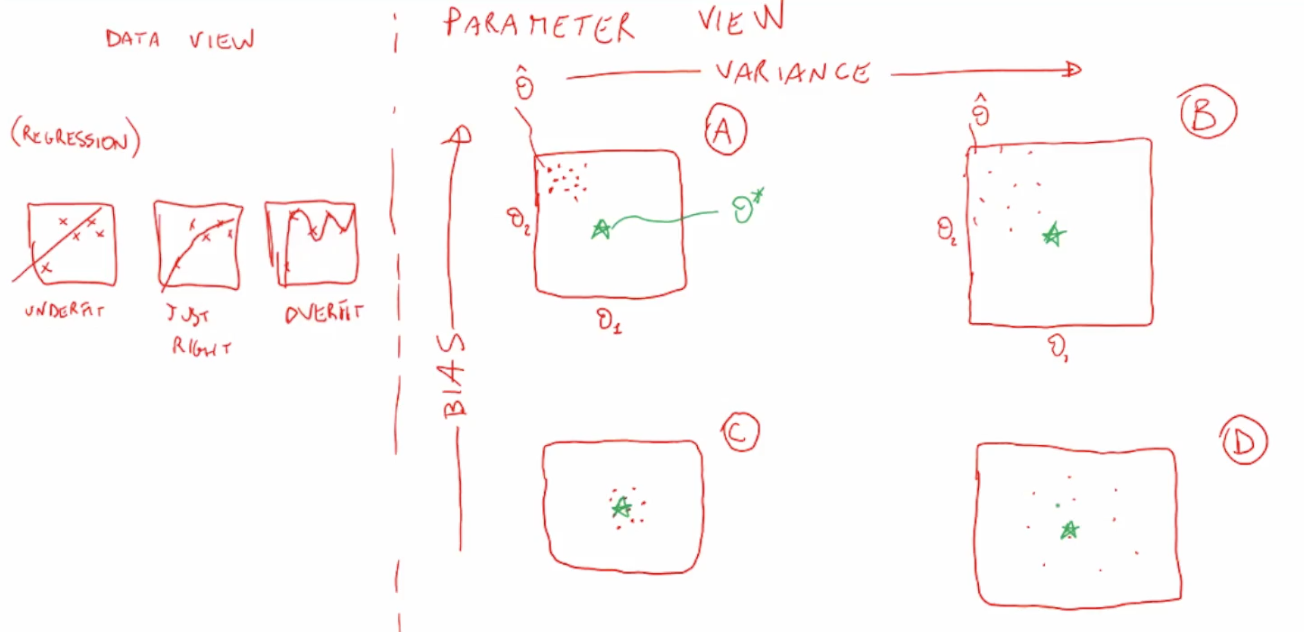 DATA VIEW
(REGRESSION)
UNDERFIT
JUST
RIGHT
OVERFIT
PARAMETER VIEW
VARIANCE
BIAS
θ̂
A
θ*
θ₂
θ₁
θ̂
B
θ₂
θ₁
C
D